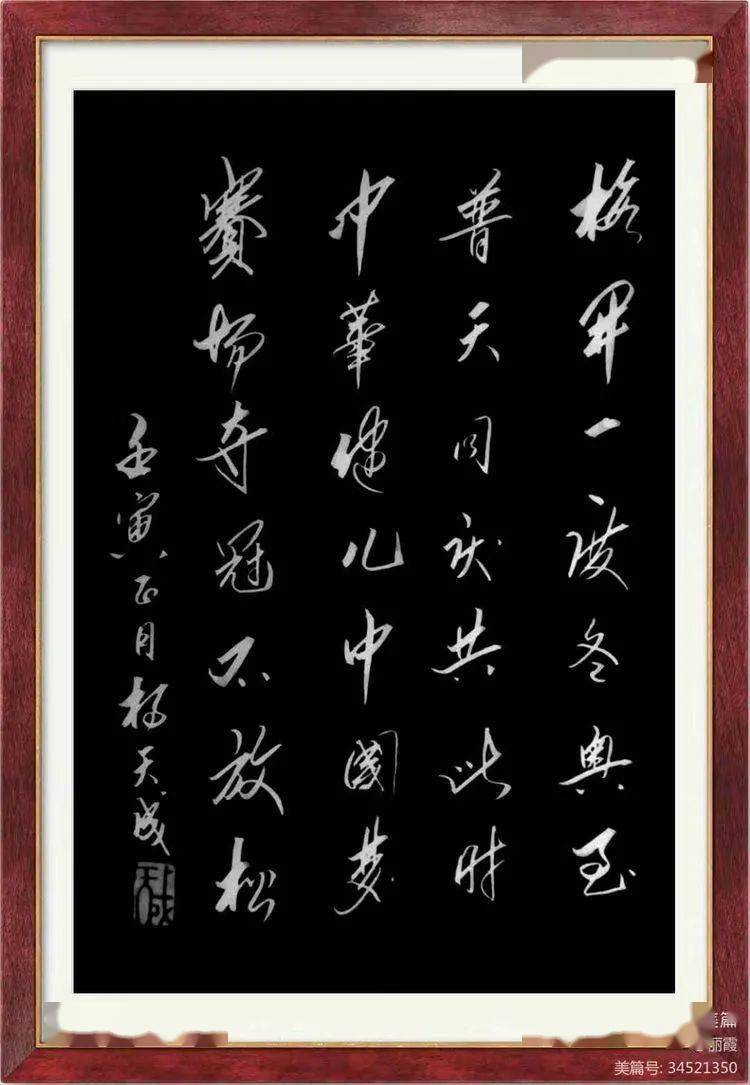 梅开一度冬奥至
普天同庆共此时
中華健儿中國梦
賽场夺冠不放松
壬寅正月杨天成
天成
美篇
丽霞
美篇号: 34521350